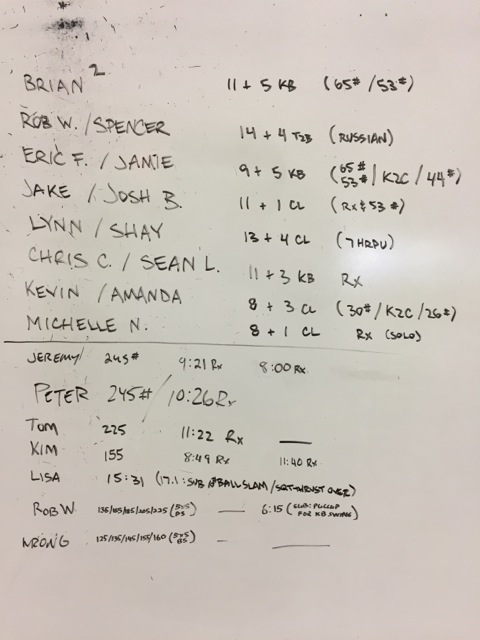 BRIAN² 11 + 5 KB (65# / 53#)
ROB W. / SPENCER 14 + 4 T2B (RUSSIAN)
ERIC F. / JAMIE 9 + 5 KB (65# 53# / K2C / 44#)
JAKE / JOSH B. 11 + 1 CL (Rx & 53#)
LYNN / SHAY 13 + 4 CL (7 HRPU)
CHRIS C. / SEAN L. 11 + 3 KB Rx
KEVIN / AMANDA 8 + 3 CL (30# / K2C / 26#)
MICHELLE N. 8 + 1 CL Rx (SOLO)
JEREMY 245# 9:21 Rx 8:00 Rx
PETER 245# 10:26 Rx
TOM 225 11:22 Rx —
KIM 155 8:49 Rx 11:40 Rx
LISA 15:31 (17.1: SUB BALL SLAM / SQT-THRUST OVER)
ROB W 135/155/185/205/225 (5x5 — 6:15 (SUB: PULLUP FOR KB SWING)
WRONG 125/135/145/155/160 (5x5 BS) — —